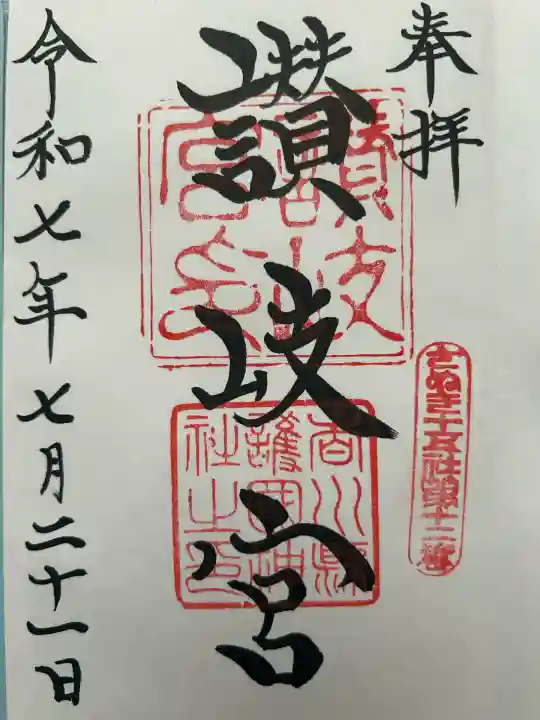 奉拝
さぬき十五社第十二番
讃岐宮
讃岐宮印
香川縣護国神社之印
令和七年七月二十一日